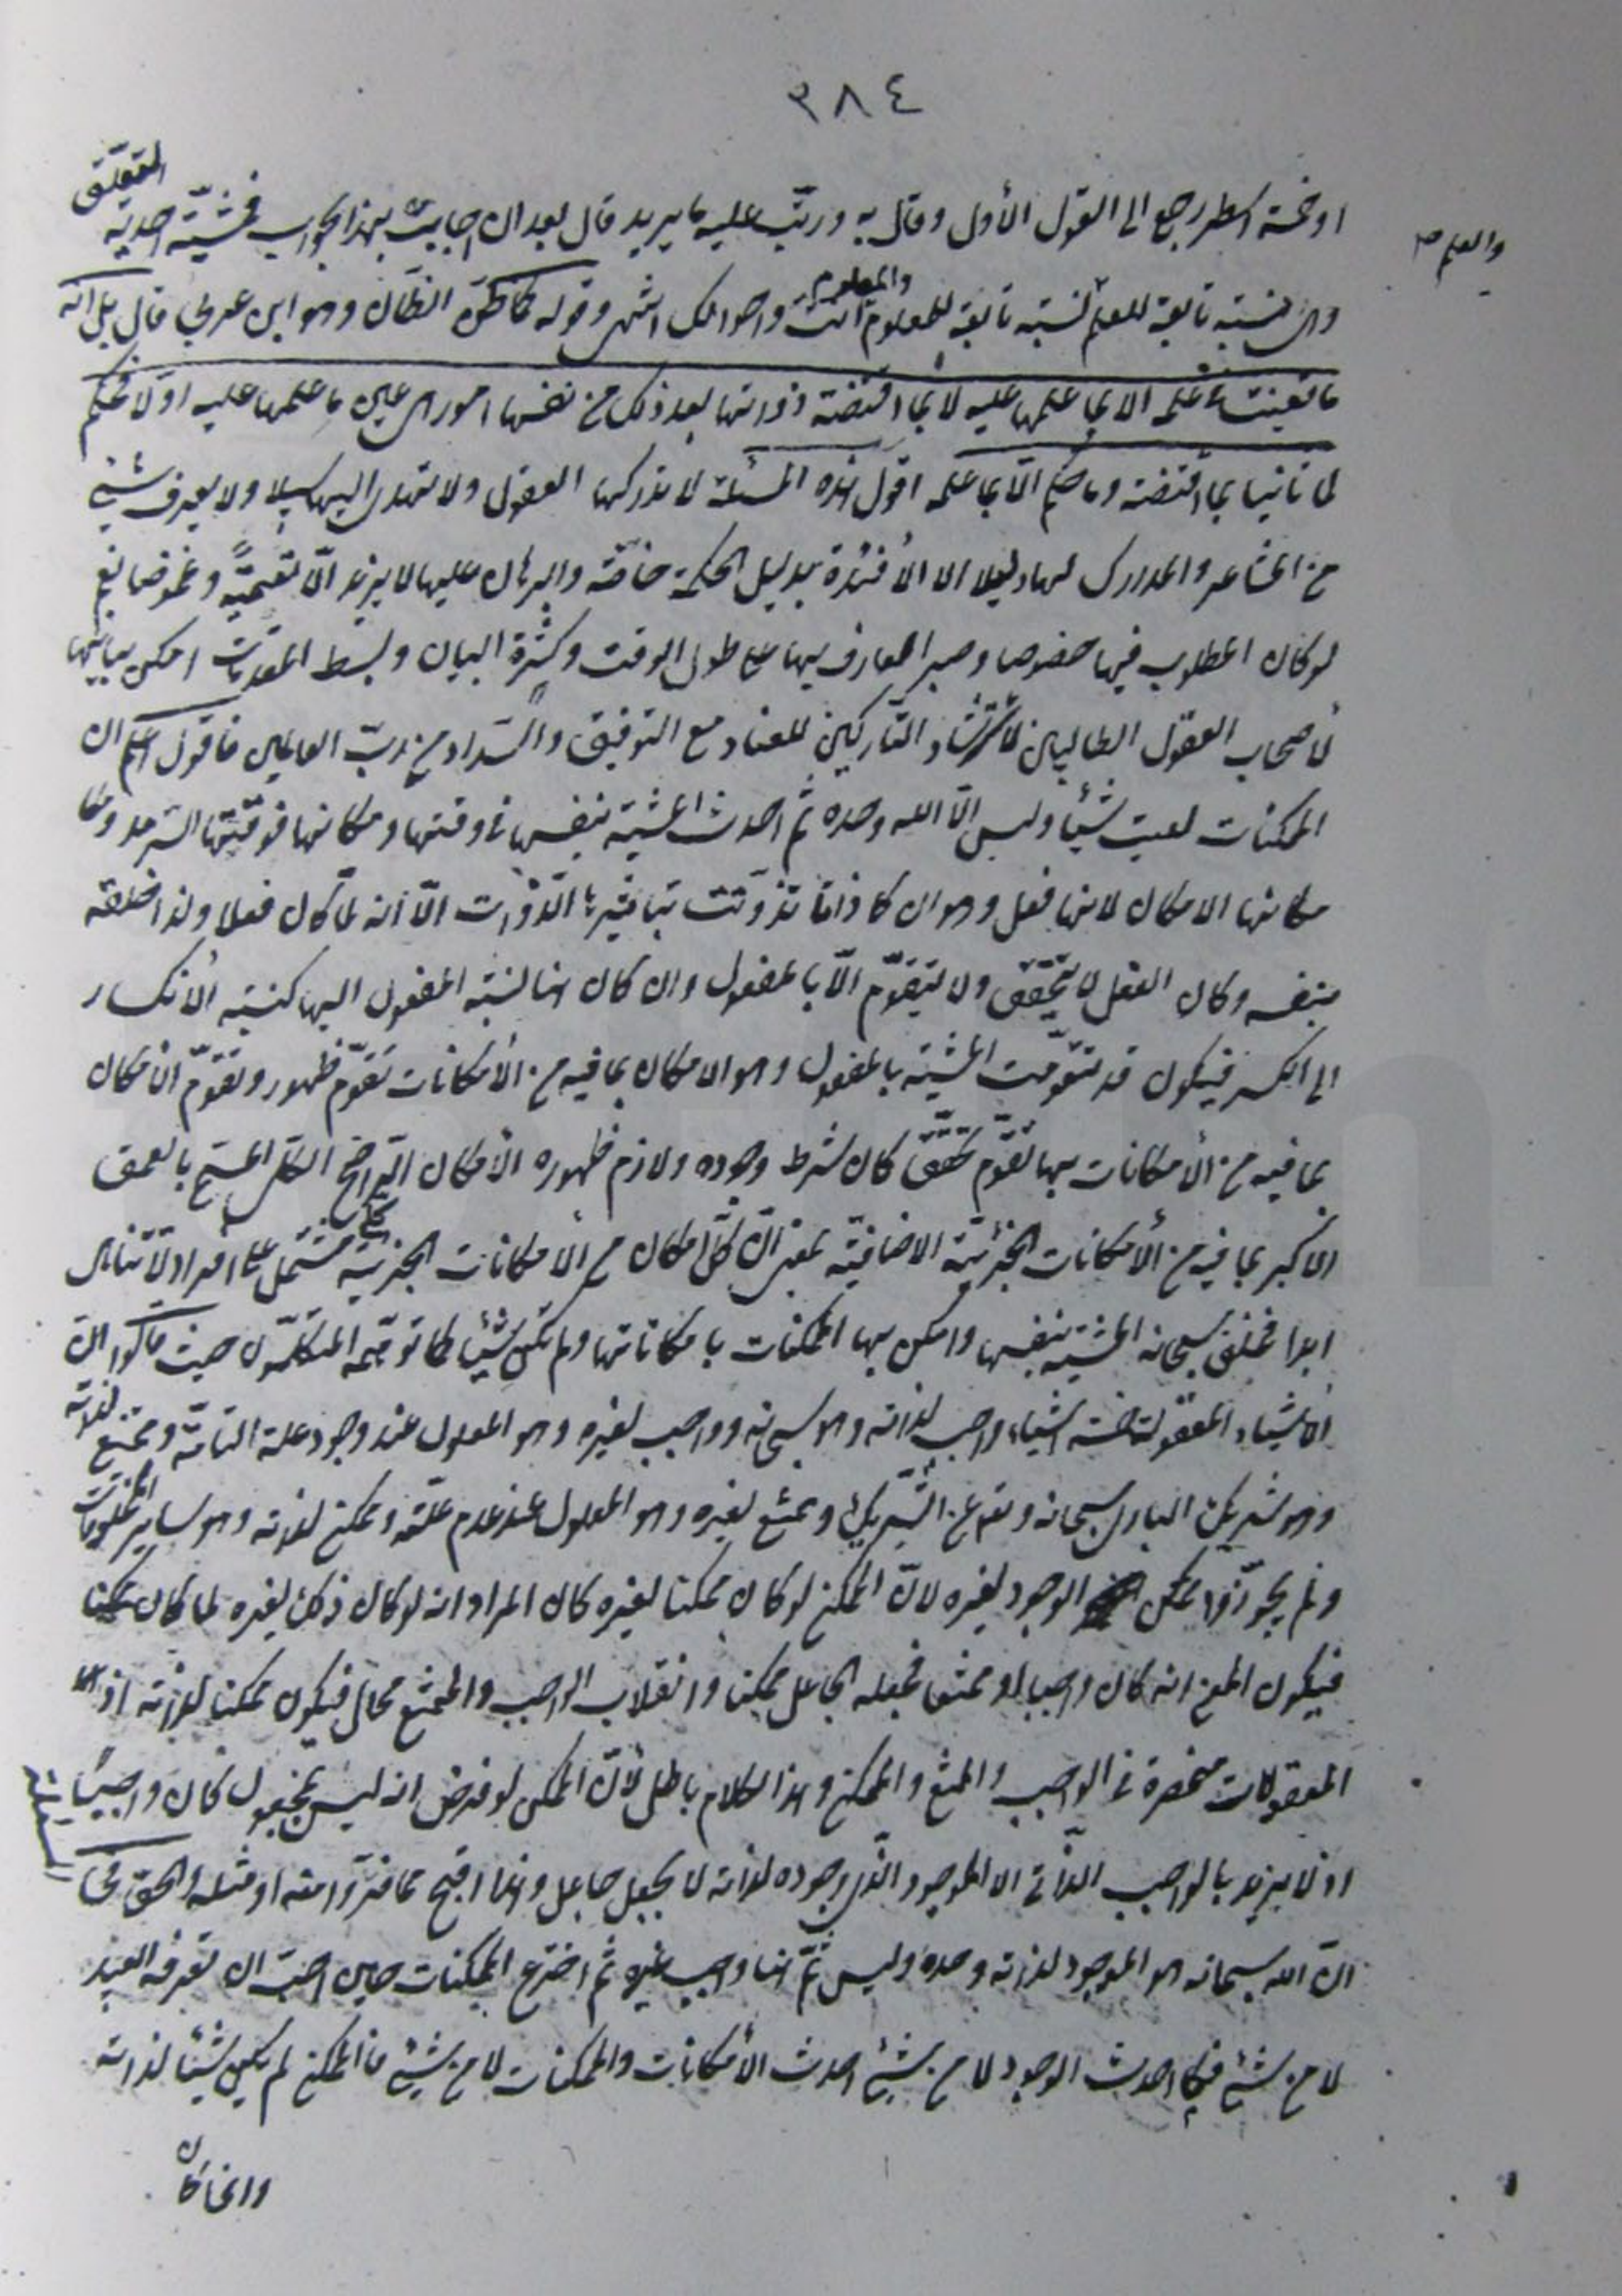 ٣٨٤
او خمسة اسطر رجع الى القول الأول وقال به ورتّب عليه ما يريد قال بعد ان اجابت بهذا الجواب فمشيّته احدية التعلّق
وهى نسبة تابعة للعلم والعلم نسبة تابعة للمعلوم والمعلوم انت واحوالك انتهى وقوله فما ظنّه الظّان وهو ابن عربي قال بل انه
ما تعينت فى علمه الا بما علمها عليه لا بما اقتضته ذواتها بعد ذلك من نفسها امور هى عين ما علمها عليه اولا فحكم
لها ثانيا بما اقتضته وما حكم الّا بما علمه اقول هذه المسئلة لا تدركها العقول ولا تهتدى اليها سبيلا ولا يعرف شئ
من المشاعر والمدارك لها دليلا الا الأفئدة بدليل الحكمة خاصّة والبرهان عليها لا يزيد الّا تعميةً وغموضا نعم
لو كان المطلوب فيها خصوصا وصبر العارف بها على طول الوقت وكثرة البيان وبسط المقدمات امكن بيانها
لأصحاب العقول الطالبين للأسترشاد التّاركين للعناد مع التوفيق والسّداد من ربّ العالمين فاقول اعلم ان
الممكنات ليست شيئا وليس الّا الله وحده ثم احدث المشية بنفسها فى وقتها ومكانها فوقتها السّرمد و
مكانها الامكان لانها فعل وهو ان كان ذاتا تذوّتت بتأثيرها الذّوات الّا انه لمّا كان فعلا ولذا خلقه
بنفسه وكان الفعل لا يتحقّق ولا يتقوّم الّا بالمفعول وان كان انما نسبة المفعول اليها كنسبة الأنكسار
الى الكسر فيكون قد تقوّمت المشيّة بالمفعول وهو الامكان بما فيه من الأمكانات تقوّم ظهور وتقوّم الأمكان
بما فيه من الأمكانات بها تقوّم تحقّق كان شرط وجوده ولازم ظهوره الأمكان الرّاجح الكلى المسمّى بالعمق
الأكبر بما فيه من الأمكانات الجزئيّة الاضافيّة بمعنى انّ كلّ امكان من الأمكانات الجزئية كلى مشتمل على افراد لا تتناهى
ابدا فخلق سبحانه المشيّة بنفسها وامكن بها الممكنات بامكاناتها ولم تكن شيئا كما توهّمه المتكلّمون حيث قالوا انّ
الأشياء المعقولة خمسة اشياء واجب لذاته وهو سبحانه وواجب لغيره وهو المعلول عند وجود علته التامّة وممتنع لذاته
وهو شريك البارى سبحانه وتعالى عن الشّريك وممتنع لغيره وهو المعلول عند عدم علّته وممكن لذاته وهو ساير المخلوقات
ولم يجوّزوا ممكن الوجود لغيره لانّ الممكن لو كان ممكنا لغيره كان المراد انه لو كان ذلك لغيره لما كان ممكنا
فيكون المعنى انه كان واجبا او ممتنعا فجعله الجاعل ممكنا وانقلاب الواجب والممتنع محال فيكون ممكنا لذاته اذ
المعقولات منحصرة فى الواجب والممتنع والممكن وهذا الكلام باطل لأنّ الممكن لو فرض انه ليس بمجعول كان واجبًا
اذ لا يزيد بالواجب الذّاتى الا الموجود الذّى وجوده لذاته لا بجعل جاعل وهذا اقبح ممّا فرّوا منه او مثله والحق فى
انّ الله سبحانه هو الموجود لذاته وحده وليس ثَمّ هنا واجب غيره ثم اخترع الممكنات حين احبّ ان تعرفه العبيد
لا من شئ فكما احدث الوجود لا من شئ احدث الأمكانات والممكنات لا من شئ فالممكن لم يكن شيئا لذاته
وانما كان